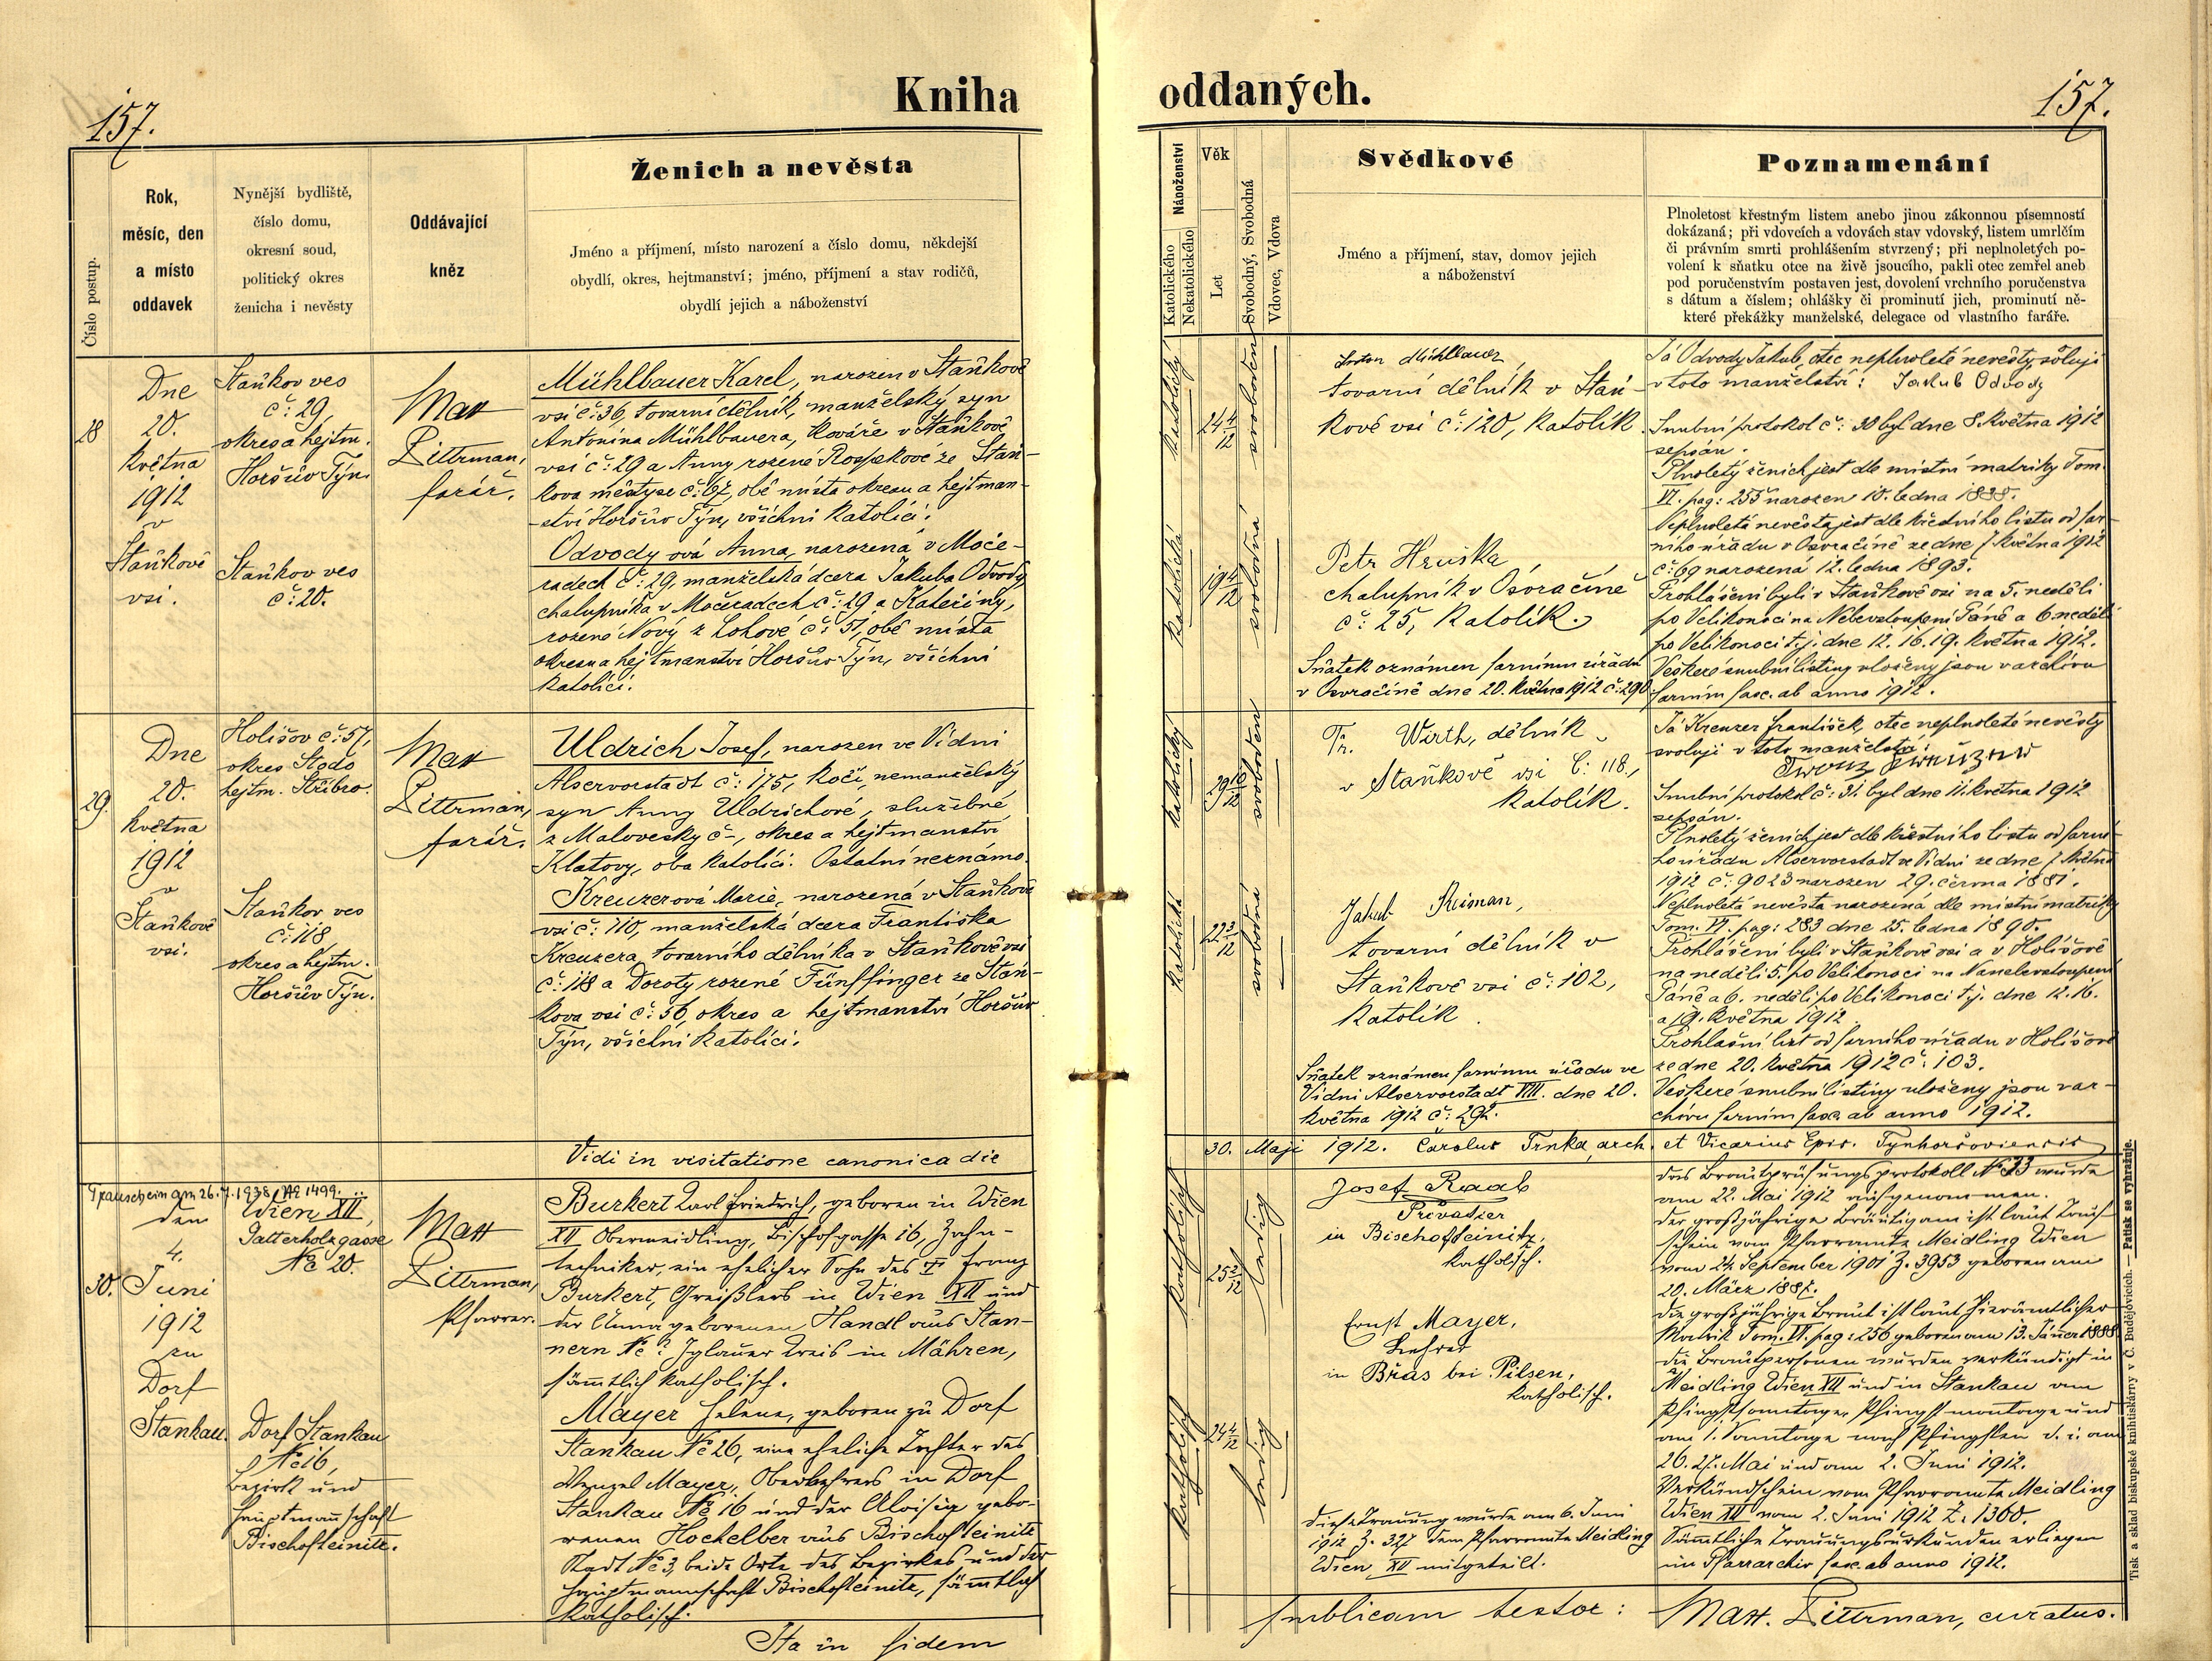 157.
Kniha
Číslo postup.
Rok,
měsíc, den
a místo
oddavek
Nynější bydliště,
číslo domu,
okresní soud,
politický okres
ženicha i nevěsty
Oddávající
kněz
Ženich a nevěsta
Jméno a příjmení, místo narození a číslo domu, někdejší
obydlí, okres, hejtmanství; jméno, příjmení a stav rodičů,
obydlí jejich a náboženství
28
Dne
20.
května
1912
v
Staňkově
vsi.
Staňkov ves
č: 29,
okres a hejtm.
Horšův Týn.
Staňkov ves
č: 20.
Mat
Dittrman,
farář.
Mühlbauer Karel, narozen v Staňkově
vsi č: 36, tovární dělník, manželský syn
Antonína Mühlbauera, kováře v Staňkově
vsi č: 29 a Anny rozené ze Staň-
kova městyse č: 67, obě místa okresu a hejtman-
-ství Horšův Týn, všichni katolíci.
Odvody ová Anna, narozená v Moče-
radech č: 29, manželská dcera Jakuba Odvody
chalupníka v Močeradech č: 29 a Kateřiny,
rozené Nový z Lohové č: 51, obě místa
okresu a hejtmanství Horšův Týn, všichni
katolíci.
29.
Dne
20.
května
1912
v
Staňkově
vsi.
Holišov č: 57,
okres Stodo
hejtm. Stříbro.
Staňkov ves
č: 118
okres a hejtm.
Horšův Týn.
Mat
Dittrman,
farář.
Uldrich Josef, narozen ve Vídni
Alservorstadt č: 175, kočí, nemanželský
syn Anny Uldrichové, služebné
z Malovesky č –, okres a hejtmanství
Klatovy, oba katolíci. Ostatní neznámo.
Kreuzerová Marie, narozená v Staňkově
vsi č: 110, manželská dcera Františka
Kreuzera, továrního dělníka v Staňkově vsi
č: 118 a Doroty rozené Fünffinger ze Staň-
kova vsi č: 56, okres a hejtmanství Horšův
Týn, všichni katolíci.
Vidi in visitatione canonica die
Trauschein am 26.7.1938 No 1499.
30.
den
4.
Juni
1912
zu
Dorf
Stankau.
Wien XII,
Gatterholzgasse
No 20.
Dorf Stankau
No 16,
Bezirk und
Hauptmannschaft
Bischofteinitz.
Mat
Dittrman,
Pfarrer.
Burkert Karl Friedrich, geboren in Wien
XII Obermeidling, Bischofgasse 16, Zahn-
techniker, ein ehelicher Sohn des † Franz
Burkert, Greißlers in Wien XII und
der Anna geborenen Handl aus Stan-
nern No ? Iglauer Kreis in Mähren,
sämmtlich katholisch.
Mayer Helene, geboren zu Dorf
Stankau No 26, eine eheliche Tochter des
Wenzel Mayer, Oberlehrers in Dorf
Stankau No 16 und der Aloisia gebo-
renen Hockelber aus Bischofteinitz
Stadt No 3, beide Orte des Bezirkes und der
Hauptmannschaft Bischofteinitz, sämmtlich
katholisch.
Ita in fidem
oddaných.
157.
Náboženství
Katolického
Nekatolického
Věk
Let
Svobodný, Svobodná
Vdovec, Vdova
Svědkové
Jméno a příjmení, stav, domov jejich
a náboženství
Poznamenání
Plnoletost křestným listem anebo jinou zákonnou písemností
dokázaná; při vdovcích a vdovách stav vdovský, listem umrlčím
či právním smrti prohlášením stvrzený; při neplnoletých po-
volení k sňatku otce na živě jsoucího, pakli otec zemřel aneb
pod poručenstvím postaven jest, dovolení vrchního poručenstva
s dátum a číslem; ohlášky či prominutí jich, prominutí ně-
které překážky manželské, delegace od vlastního faráře.
katolický
24 4/12
svoboden
Anton Mühlbauer
tovarní dělník v Staň-
kově vsi č: 120, katolík.
katolická
19 4/12
svobodná
Petr Hruška
chalupník v Osvračíně
č: 25, katolík.
Sňatek oznámen farnímu úřadu
v Osvračíně dne 20. května 1912 č: 290
Já Odvody Jakub, otec neplnoleté nevěsty, svoluji
v toto manželství: Jakub Odvody
Snubní protokol č: 30 byl dne 8. května 1912
sepsán.
Plnoletý ženich jest dle místní matriky Tom.
VI. pag: 255 narozen 10. ledna 1888.
Neplnoletá nevěsta jest dle křestního listu od far-
ního úřadu v Osvračíně ze dne 7. května 1912
č: 69 narozená 12. ledna 1893.
Prohlášeni byli v Staňkově vsi na 5. neděli
po Velikonoci na Nebevstoupení Páně a 6 neděli
po Velikonoci t.j. dne 12. 16. 19. května 1912.
Veškeré snubní listiny uloženy jsou v archivu
farním fasc. ab anno 1912.
katolický
29 10/12
svoboden
Fr. Wirth, dělník
v Staňkově vsi č: 118,
katolík.
katolická
22 3/12
svobodná
Jakub Reiman,
tovarní dělník v
Staňkově vsi č: 102,
katolík.
Sňatek oznámen farnímu úřadu ve
Vídni Alservorstadt VIII. dne 20.
května 1912 č: 292.
Já Kreuzer František, otec neplnoleté nevěsty
svoluji v toto manželství:
Snubní protokol č: 31. byl dne 11. května 1912
sepsán.
Plnoletý ženich jest dle křestního listu od farní-
ho úřadu Alservorstadt ve Vídni ze dne 7. května
1912 č: 9023 narozen 29. června 1881.
Neplnoletá nevěsta narozená dle místní matriky
Tom. VI. pag: 283 dne 25. ledna 1890.
Prohlášeni byli v Staňkově vsi a v Holišově
na neděli 5. po Velikonoci na Nanebevstoupení
Páně a 6. neděli po Velikonoci t.j. dne 12. 16.
a 19. května 1912.
Prohlašní list od farního úřadu v Holišově
ze dne 20. května 1912 č: 103.
Veškeré snubní listiny uloženy jsou v ar-
chivu farním fasc. ab anno 1912.
30. Maji 1912. Carolus Trnka, arch. et Vicarius Epis. Tynhoršoviensis
katholisch
25 2/12
ledig
Josef Raab
Privatier
in Bischofteinitz,
katholisch.
Ernst Mayer,
Lehrer
in Břas bei Pilsen,
katholisch.
katholisch
24 4/12
ledig
Diese Trauung wurde am 6. Juni
1912 Z. 327 dem Pfarramte Meidling
Wien XII mitgeteilt.
Das Brautprüfungsprotokoll No 33 wurde
am 22. Mai 1912 aufgenommen.
Der großjährige Bräutigam ist laut Tauf-
schein vom Pfarramte Meidling Wien
vom 24 September 1901 Z. 3953 geboren am
20. März 1887.
Die großjährige Braut ist laut hierämtlicher
Matrik Tom. VI. pag: 256 geboren am 13. Jänner 1888.
Die Brautpersonen wurden verkündigt in
Meidling Wien XII und in Stankau am
Pfingstsonntage, Pfingstmontage und
am 1. Sonntage nach Pfingsten d. i. am
26. 27. Mai und am 2. Juni 1912.
Verkündschein vom Pfarramte Meidling
Wien XII vom 2. Juni 1912 Z. 1360.
Sämmtliche Trauungsurkunden erliegen
im Pfarrarchiv fasc. ab anno 1912.
publicam testor: Matt. Dittrman, curatus.
Tisk a sklad biskupské knihtiskárny v Č. Budějovicích. — Patisk se vyhražuje.